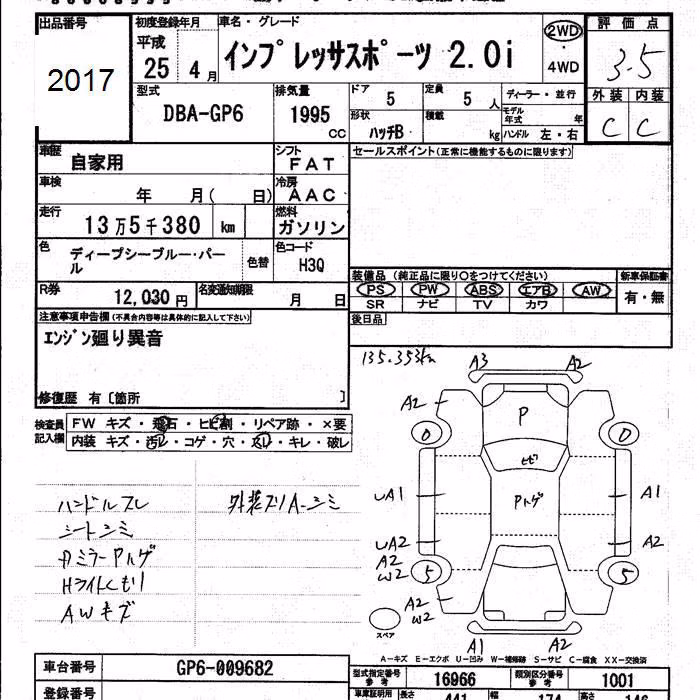 出品番号
2017
初度登録年月
平成
25 4 月
車名・グレード
インプレッサスポーツ 2.0i
2WD
4WD
評価点
3.5
外装 内装
C C
型式
DBA-GP6
排気量
1995
CC
ドア
5
定員
5 人
形状
ハッチB
積載
kg
ディーラー・並行
モデル年式 年
ハンドル 左・右
車歴
自家用
シフト
FAT
車検
年 月( 日)
冷房
AAC
走行
13万5千380 km
燃料
ガソリン
色
ディープシーブルー・パール
色替
色コード
H3Q
R券
12,030円
名変通知期限
月 日
セールスポイント(正常に機能するものに限ります)
装備品 (純正品に限り○をつけてください)
新車保証書
PS PW ABS エアB AW
SR ナビ TV カワ
有・無
後日品
注意事項申告欄(不具合内容等は具体的に記入して下さい)
エンジン廻り異音
修復歴 有〔箇所 〕
検査員記入欄
FW キズ・飛石・ヒビ割・リペア跡・×要
内装 キズ・汚レ・コゲ・穴・スレ・キレ・破レ
ハンドルスレ
シートシミ
カミラーPハゲ
Hライトくもり
AWキズ
外装スリA-シミ
135.353km
A3 A2
A2
P
0 0
ヒビ
UA1 Pハゲ A1
UA2 A2
A2
W2
5 5
A2
W2
スペア
A1 A2
A-キズ E-エクボ U-凹み W-補修跡 S-サビ C-腐食 XX-交換済
車台番号
GP6-009682
型式指定番号
参考
16966
類別区分番号
参考
1001
登録番号
車庫証明用
長さ
441
幅
174
高さ
146